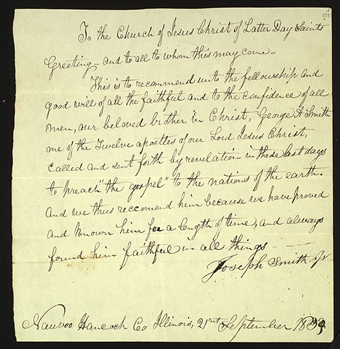 To the Church of Jesus Christ of Latter Day Saints
Greeting, and to all to whom this may come—
This is to recommend unto the fellowship and
good will of all the faithful and to the confidence of all
men, our beloved brother in Christ, George A Smith
one of the twelve apostles of our Lord Jesus Christ,
called and sent forth by revelation in these last days
to preach "the gospel" to the nations of the earth.
And we thus reccomend him because we have proved
and known him for a length of time, and always
found him faithful in all things
Joseph Smith jr
Nauvoo Hancock Co Illinois, 21st September 1839